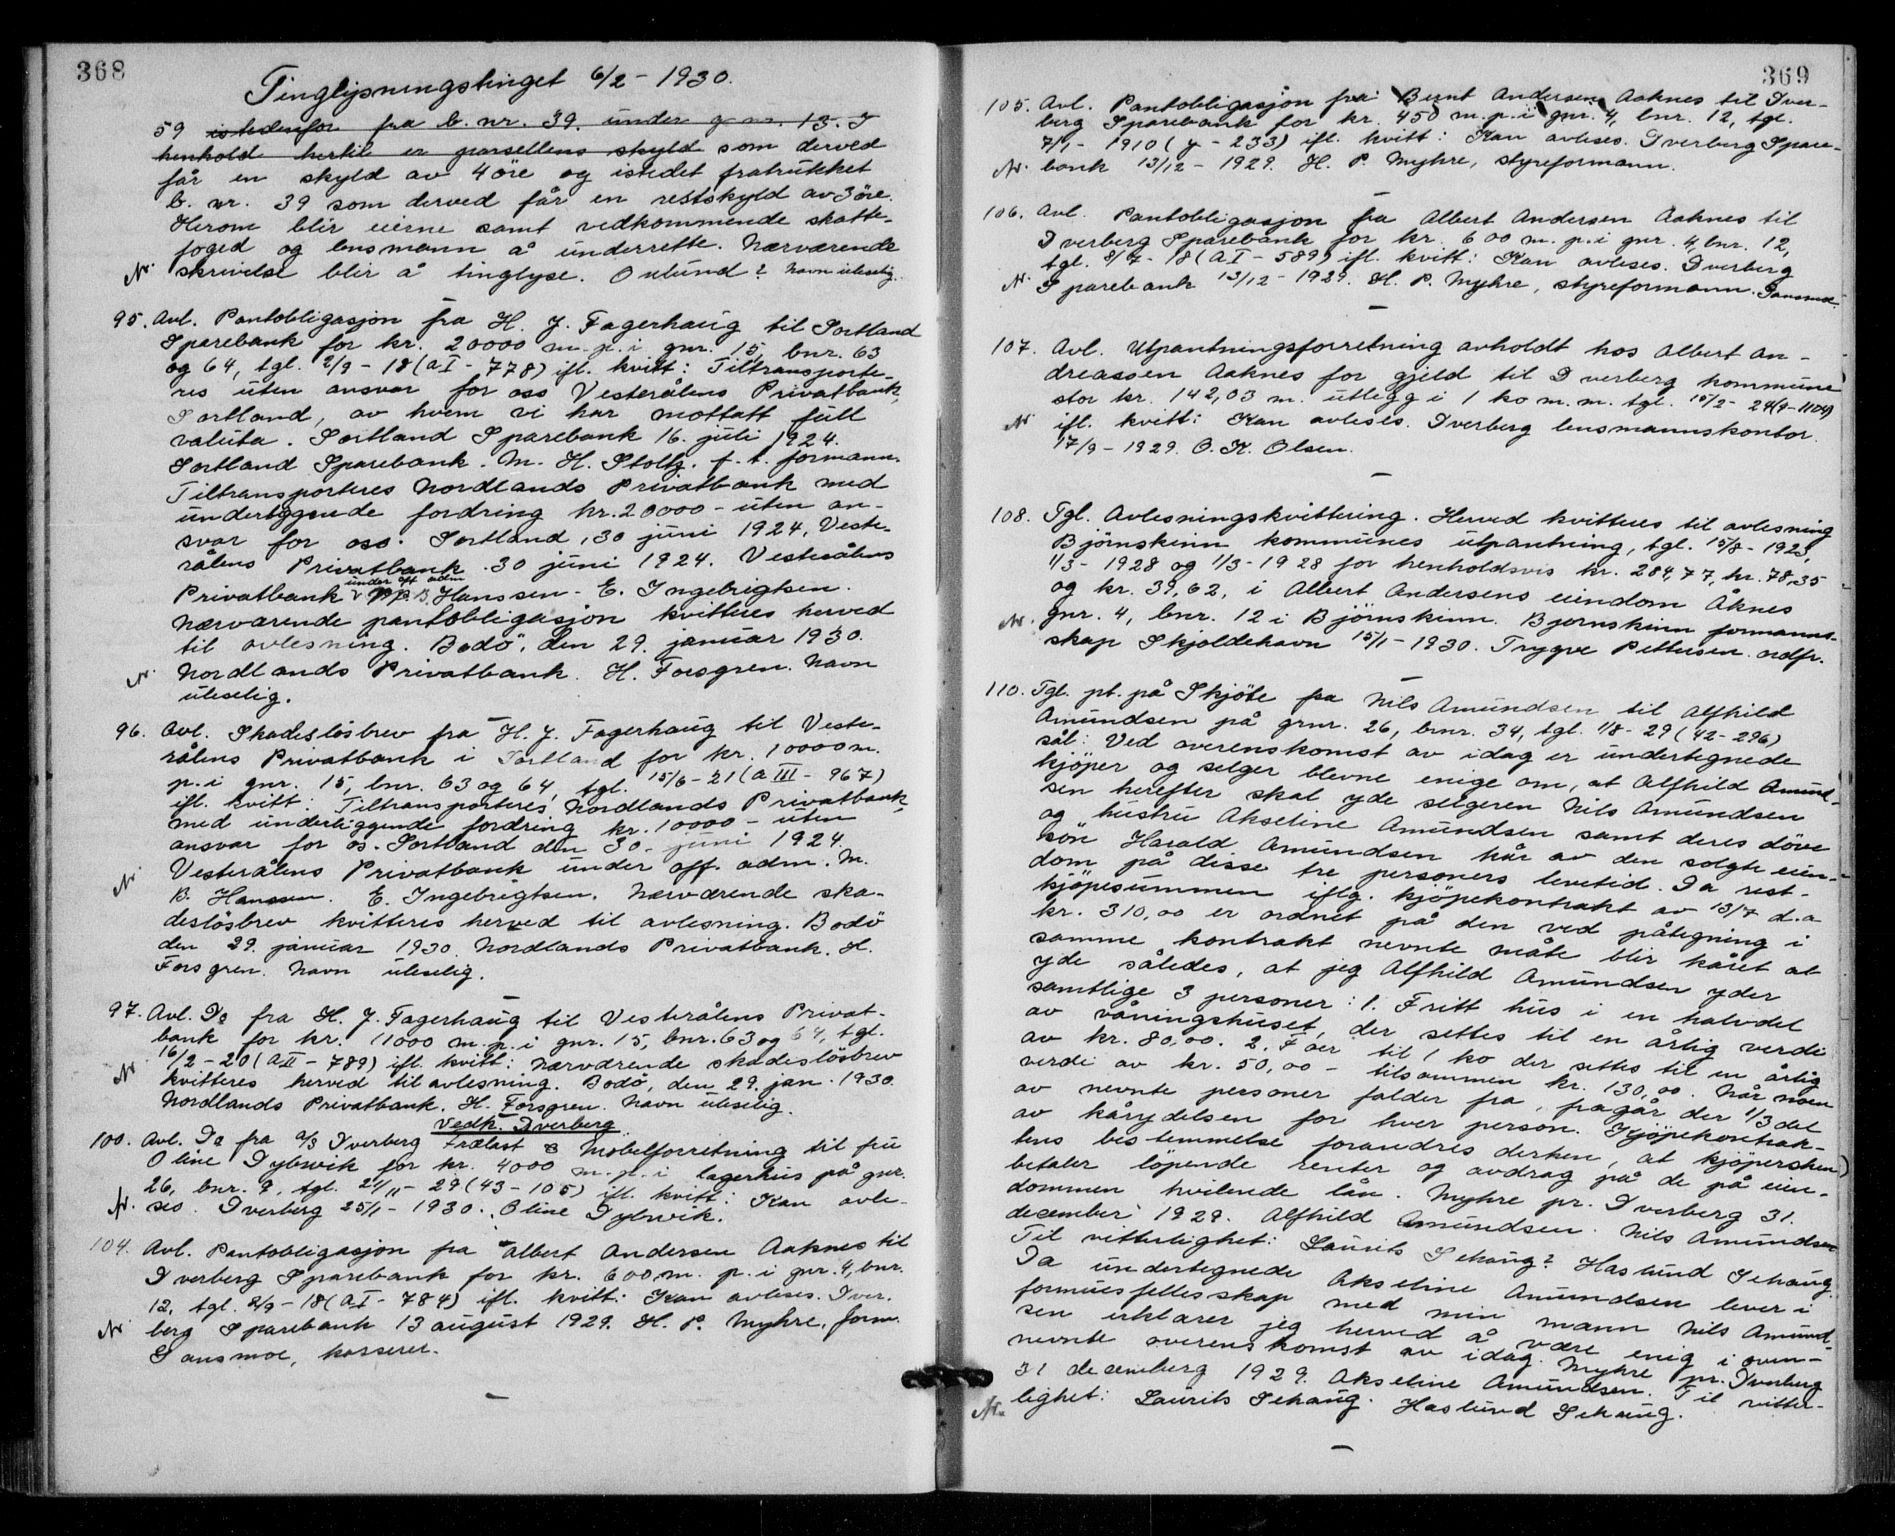 368
Tinglysningstinget 6/2 - 1930.
59 istedenfor fra b. nr. 39. under g. nr. 13. I
henhold hertil er parsellens skyld som derved
får en skyld av 4 öre og istedet fratrukket
b. nr. 39 som derved får en restskyld av 3 öre.
Herom blir eierne samt vedkommende skatte-
foged og lensmann å underrette. Nærværende
skrivelse blir å tinglyse. Oxlund? Navn uleselig.
95. Avl. Pantobligasjon fra H. J. Fagerhaug til Sortland
Sparebank for kr. 20000 m. p. i gnr. 15, bnr. 63
og 64, tgl. 2/9 - 18 (a I - 778) ifl. kvitt: Tiltransporte-
res uten ansvar for oss Vesterålens Privatbank,
Sortland, av hvem vi har mottatt full
valuta. Sortland Sparebank 16. juli 1924.
Sortland Sparebank. M. H. Stoltz. f. t. formann.
Tiltransporteres Nordlands Privatbank med
underliggende fordring kr. 20000 - uten an-
svar for oss. Sortland, 30 juni 1924, Veste-
rålens Privatbank 30 juni 1924. Vesterålens
Privatbank under off. adm. B. Hanssen - E. Ingebrigtsen.
Nærværende pantobligasjon kvitteres herved
til avlesning. Bodö, den 29. januar 1930.
Nordlands Privatbank. H. Forsgren. Navn
uleselig.
96. Avl. Skadeslösbrev fra H. J. Fagerhaug til Veste-
rålens Privatbank i Sortland for kr. 10000 m.
p. i gnr. 15, bnr. 63 og 64, tgl. 15/6 - 21 (a III - 967)
ifl. kvitt: Tiltransporteres Nordlands Privatbank
med underliggende fordring kr. 10000 - uten
ansvar for os. Sortland den 30. juni 1924.
Vesterålens Privatbank under off. adm. M.
B. Hanssen. E. Ingebrigtsen. Nærværende ska-
deslösbrev kvitteres herved til avlesning. Bodö
den 29. januar 1930. Nordlands Privatbank. H.
Forsgren. Navn uleselig.
97. Avl. Do fra H. J. Fagerhaug til Vesterålens Privat-
bank for kr. 11000 m. p. i gnr. 15, bnr. 63 og 64, tgl.
16/2 - 20 (a II - 789) ifl. kvitt: Nærværende skadeslösbrev
kvitteres herved til avlesning. Bodö, den 29. jan. 1930.
Nordlands Privatbank. H. Forsgren. Navn uleselig.
Vedk. Dverberg
100. Avl. Do fra A/S Dverberg Trælast & Möbelforretning til fru
Oline Dybwik for kr. 4000 m. p. i lagerhus på gnr.
26, bnr. 9, tgl. 21/11 - 29 (43 - 105) ifl. kvitt: Kan avle-
ses. Dverberg 25/1 - 1930. Oline Dybwik.
104. Avl. Pantobligasjon fra Albert Andersen Aaknes til
Dverberg Sparebank for kr. 600 m. p. i gnr. 4, bnr.
12, tgl. 2/9 - 18 (a I - 784) ifl. kvitt: Kan avleses. Dver-
berg Sparebank 13 august 1929. H. P. Myhre, form.
Sansmoe, kasserer.
369
105. Avl. Pantobligasjon fra Bernt Andersen Aaknes til Dver-
berg Sparebank for kr. 450 m. p. i gnr. 4, bnr. 12, tgl.
7/1 - 1910 (y - 233) ifl. kvitt: Kan avleses. Dverberg Spare-
bank 13/12 - 1929. H. P. Myhre, styreformann.
106. Avl. Pantobligasjon fra Albert Andersen Aaknes til
Dverberg Sparebank for kr. 600 m. p. i gnr. 4, bnr. 12,
tgl. 8/7 - 18 (a I - 589) ifl. kvitt: Kan avleses. Dverberg
Sparebank 13/12 - 1929. H. P. Myhre, styreformann. Sansmoe.
107. Avl. Utpantningsforretning avholdt hos Albert An-
dreassen Aaknes for gjeld til Dverberg kommune
stor kr. 142,03 m. utlegg i 1 ko m. m. tgl. 15/2 - 24 (9 - 1104)
ifl. kvitt: Kan avleses. Dverberg lensmannskontor.
17/9 - 1929. O. K. Olsen.
108. Tgl. Avlesningskvittering. Herved kvitteres til avlesning
Björnskinn kommunes utpantning, tgl. 15/8 - 1925,
1/3 - 1928 og 1/3 - 1928 for henholdsvis kr. 284,77, kr. 78,35
og kr. 39,62, i Albert Andersens eiendom Åknes
gnr. 4, bnr. 12 i Björnskinn. Bjørnskinn formanns-
skap Skjoldehavn 15/1 - 1930. Trygve Pettersen. ordfr.
110. Tgl. pt. på Skjöte fra Nils Amundsen til Alfhild
Amundsen på grnr. 26, brnr. 34, tgl. 1/8 - 29 (42 - 296)
sål: Ved overenskomst av idag er undertegnede
kjöper og selger blevne enige om, at Alfhild Amund-
sen herefter skal yde selgeren Nils Amundsen
og hustru Akseline Amundsen samt deres döve
sön Harald Amundsen kår av den solgte eien-
dom på disse tre personers levetid. Da rest-
kjöpesummen iflg. kjöpekontrakt av 13/7 d. a
kr. 310,00 er ordnet på den ved påtegning i
samme kontrakt nevnte måte blir kåret at
yde således, at jeg Alfhild Amundsen yder
samtlige 3 personer: 1. Fritt hus i en halvdel
av våningshuset, der settes til en årlig verdi
av kr. 80,00. 2. Foer til 1 ko der settes til en årlig
verdi av kr. 50,00 - tilsammen kr. 130,00. Når noen
av nevnte personer falder fra, fragår der 1/3 del
av kårydelsen for hver person. Kjöpekontrak-
tens bestemmelse forandres derhen, at kjöpersken
betaler löpende renter og avdrag på de på eien-
dommen hvilende lån. Myhre pr. Dverberg 31.
december 1929. Alfhild Amundsen. Nils Amundsen
Til vitterlighet: Laurits Sehaug? Haslund Sehaug.
Da undertegnede Akseline Amundsen lever i
formuesfellesskap med min mann Nils Amund-
sen erklærer jeg herved å være enig i oven-
nevnte overenskomst av idag. Myhre pr. Dverberg
31 decemberg 1929. Akseline Amundsen. Til vitter-
lighet: Laurits Sehaug. Haslund Sehaug.